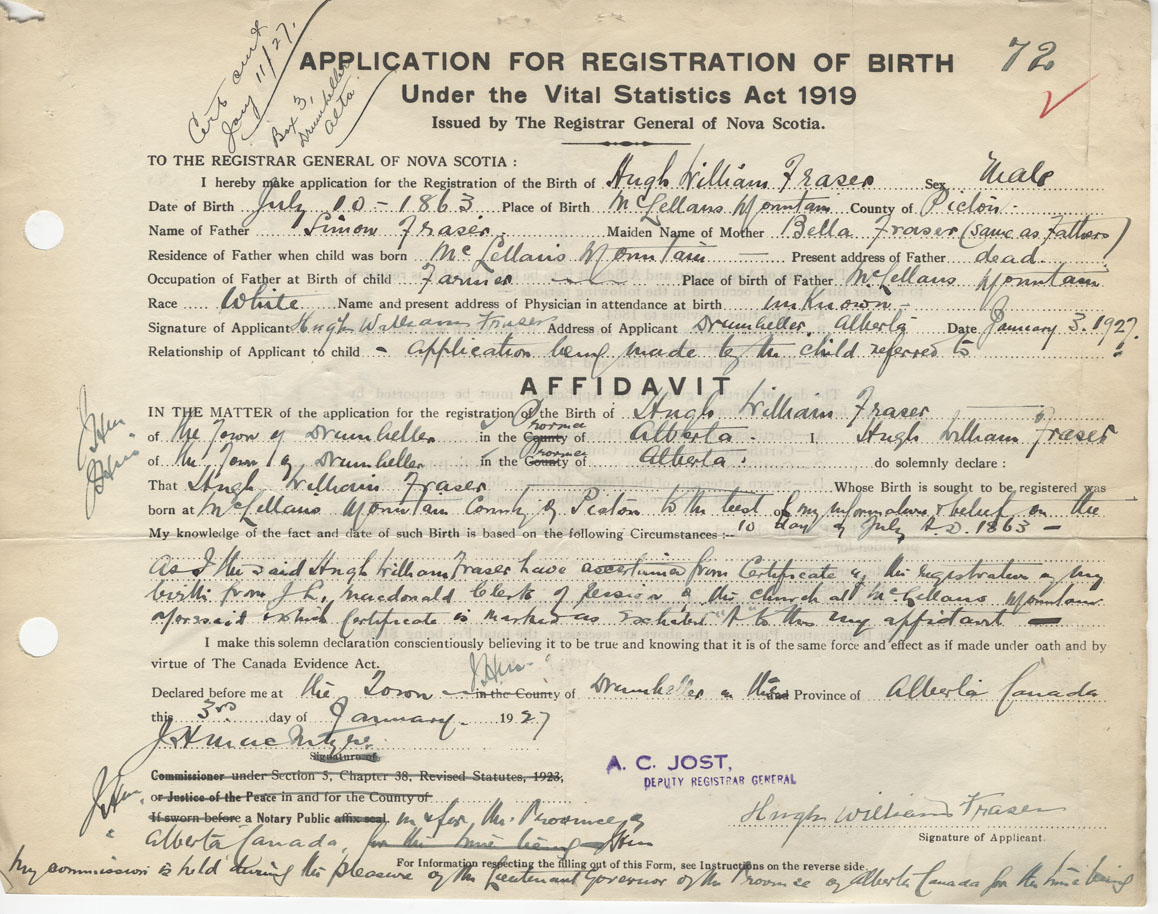 Cert sent
Jany 11/27.
Box 3,
Drumheller
Alta.
72
APPLICATION FOR REGISTRATION OF BIRTH
Under the Vital Statistics Act 1919
Issued by The Registrar General of Nova Scotia.
TO THE REGISTRAR GENERAL OF NOVA SCOTIA :
I hereby make application for the Registration of the Birth of Hugh William Fraser Sex Male
Date of Birth July 10 - 1863 Place of Birth McLellans Mountain County of Pictou.
Name of Father Simon Fraser. Maiden Name of Mother Bella Fraser (Same as Fathers)
Residence of Father when child was born McLellans Mountain — Present address of Father dead.
Occupation of Father at Birth of child Farmer Place of birth of Father McLellans Mountain
Race White Name and present address of Physician in attendance at birth unknown
Signature of Applicant Hugh William Fraser Address of Applicant Drumheller, Alberta Date January 3. 1927.
Relationship of Applicant to child - application being made by the child referred to
AFFIDAVIT
IN THE MATTER of the application for the registration of the Birth of Hugh William Fraser
of the Town of Drumheller in the County Province of Alberta. I, Hugh William Fraser
of the Town of Drumheller in the County Province of Alberta. do solemnly declare :
That Hugh William Fraser Whose Birth is sought to be registered was
born at McLellans Mountain County of Pictou to the best of my information & belief on the
10 day of July A.D. 1863 —
My knowledge of the fact and date of such Birth is based on the following Circumstances :--
As I the said Hugh William Fraser have ascertained from Certificate of the registration of my
birth from J. L. Macdonald Clerk of Session of the church at McLellans Mountain
aforesaid which Certificate is marked as Exhibit "A" to this my affidavit —
I make this solemn declaration conscientiously believing it to be true and knowing that it is of the same force and effect as if made under oath and by
virtue of The Canada Evidence Act.
Declared before me at the Town in the County of Drumheller in the Province of Alberta Canada
this 3rd day of January 1927
Signature of
Commissioner under Section 5, Chapter 38, Revised Statutes, 1923,
or Justice of the Peace in and for the County of
If sworn before a Notary Public affix seal. in & for the Province of
Alberta Canada, for the time being
A. C. JOST,
DEPUTY REGISTRAR GENERAL
Hugh William Fraser
Signature of Applicant.
For Information respecting the filling out of this Form, see Instructions on the reverse side.
My commission is held during the pleasure of the Lieutenant Governor of the Province of Alberta Canada for the time being